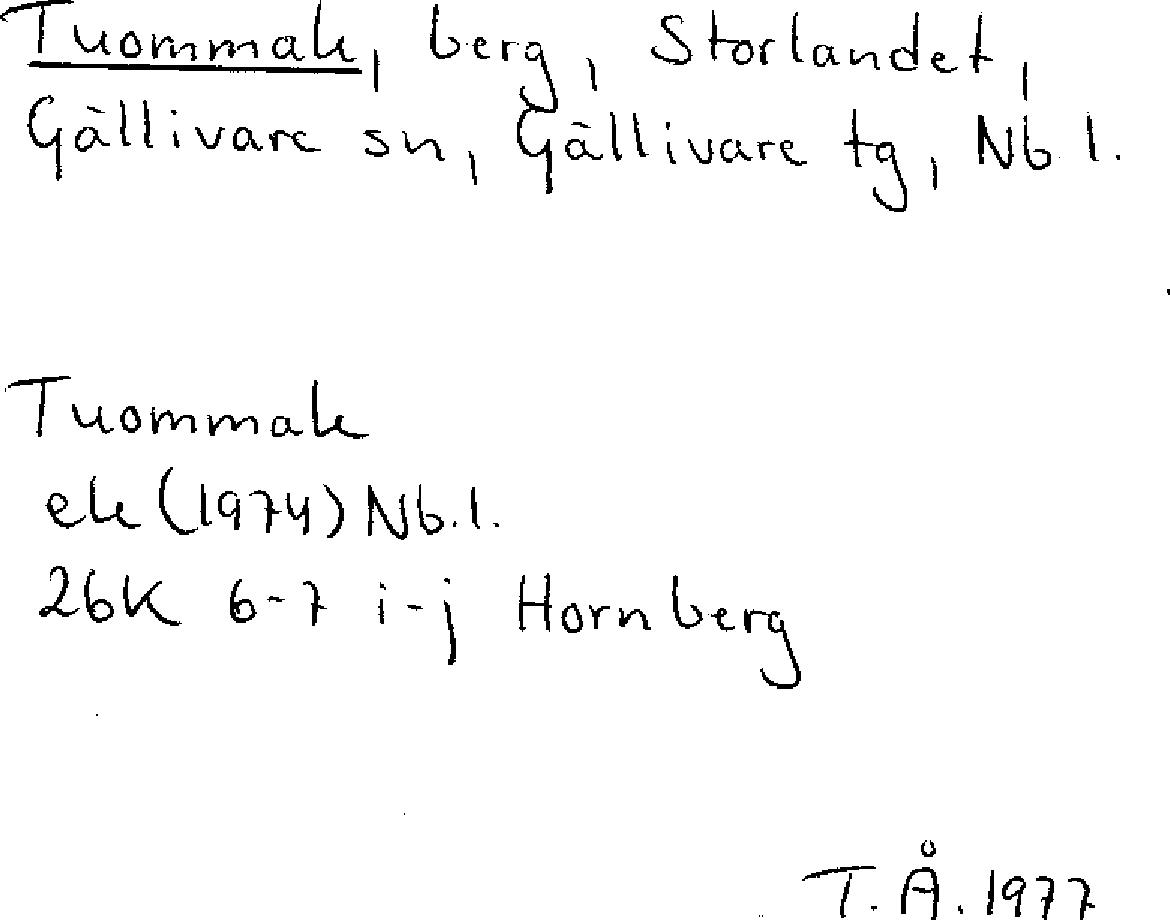 Tuommak, berg, Storlandet,
Gällivare sn, Gällivare tg, Nb l.
Tuommak
ek (1974) Nb. l.
26K 6-7 i-j Hornberg
T. Å. 1977